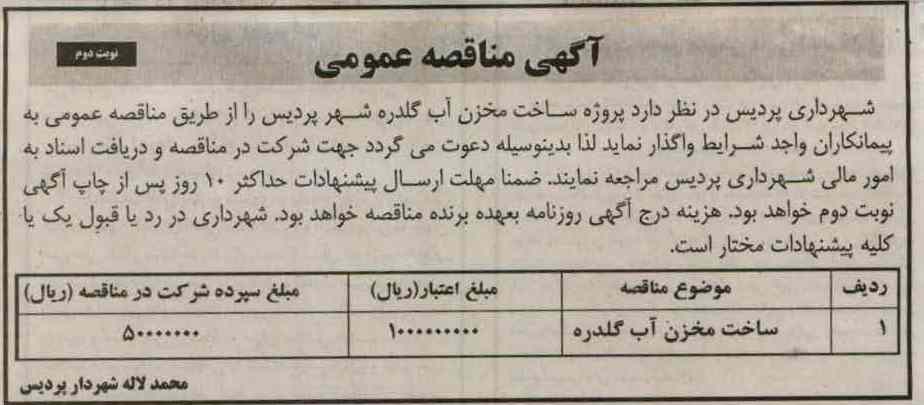 آگهی مناقصه عمومی
نوبت دوم
شهرداری پردیس در نظر دارد پروژه ساخت مخزن آب گلدره شهر پردیس را از طریق مناقصه عمومی به
پیمانکاران واجد شرایط واگذار نماید لذا بدینوسیله دعوت می گردد جهت شرکت در مناقصه و دریافت اسناد به
امور مالی شهرداری پردیس مراجعه نمایند. ضمنا مهلت ارسال پیشنهادات حداکثر ۱۰ روز پس از چاپ آگهی
نوبت دوم خواهد بود. هزینه درج آگهی روزنامه بعهده برنده مناقصه خواهد بود. شهرداری در رد یا قبول یک یا
کلیه پیشنهادات مختار است.
ردیف موضوع مناقصه مبلغ اعتبار(ریال) مبلغ سپرده شرکت در مناقصه (ریال)
۱ ساخت مخزن آب گلدره ۱۰۰۰۰۰۰۰۰۰ ۵۰۰۰۰۰۰۰
محمد لاله شهردار پردیس